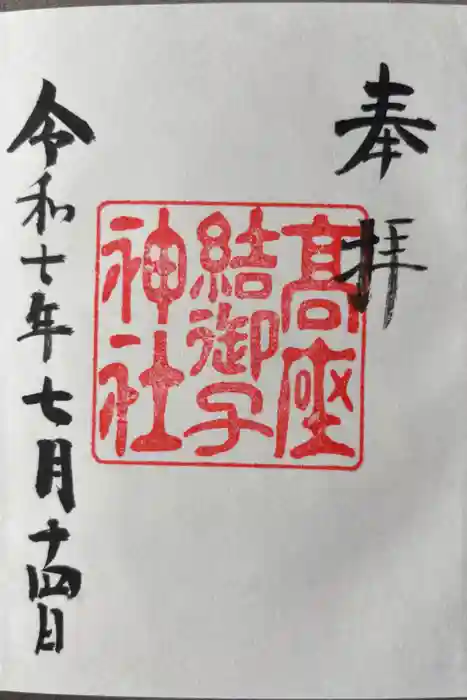 奉拝
髙座
結御子
神社
令和七年七月十四日